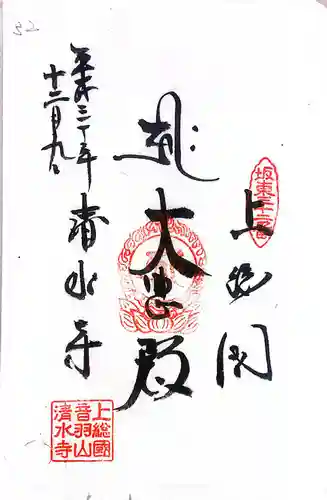 坂東三十二番
上総国
大悲殿
平成三十年
十二月九日
清水寺
上総國
音羽山
清水寺
32